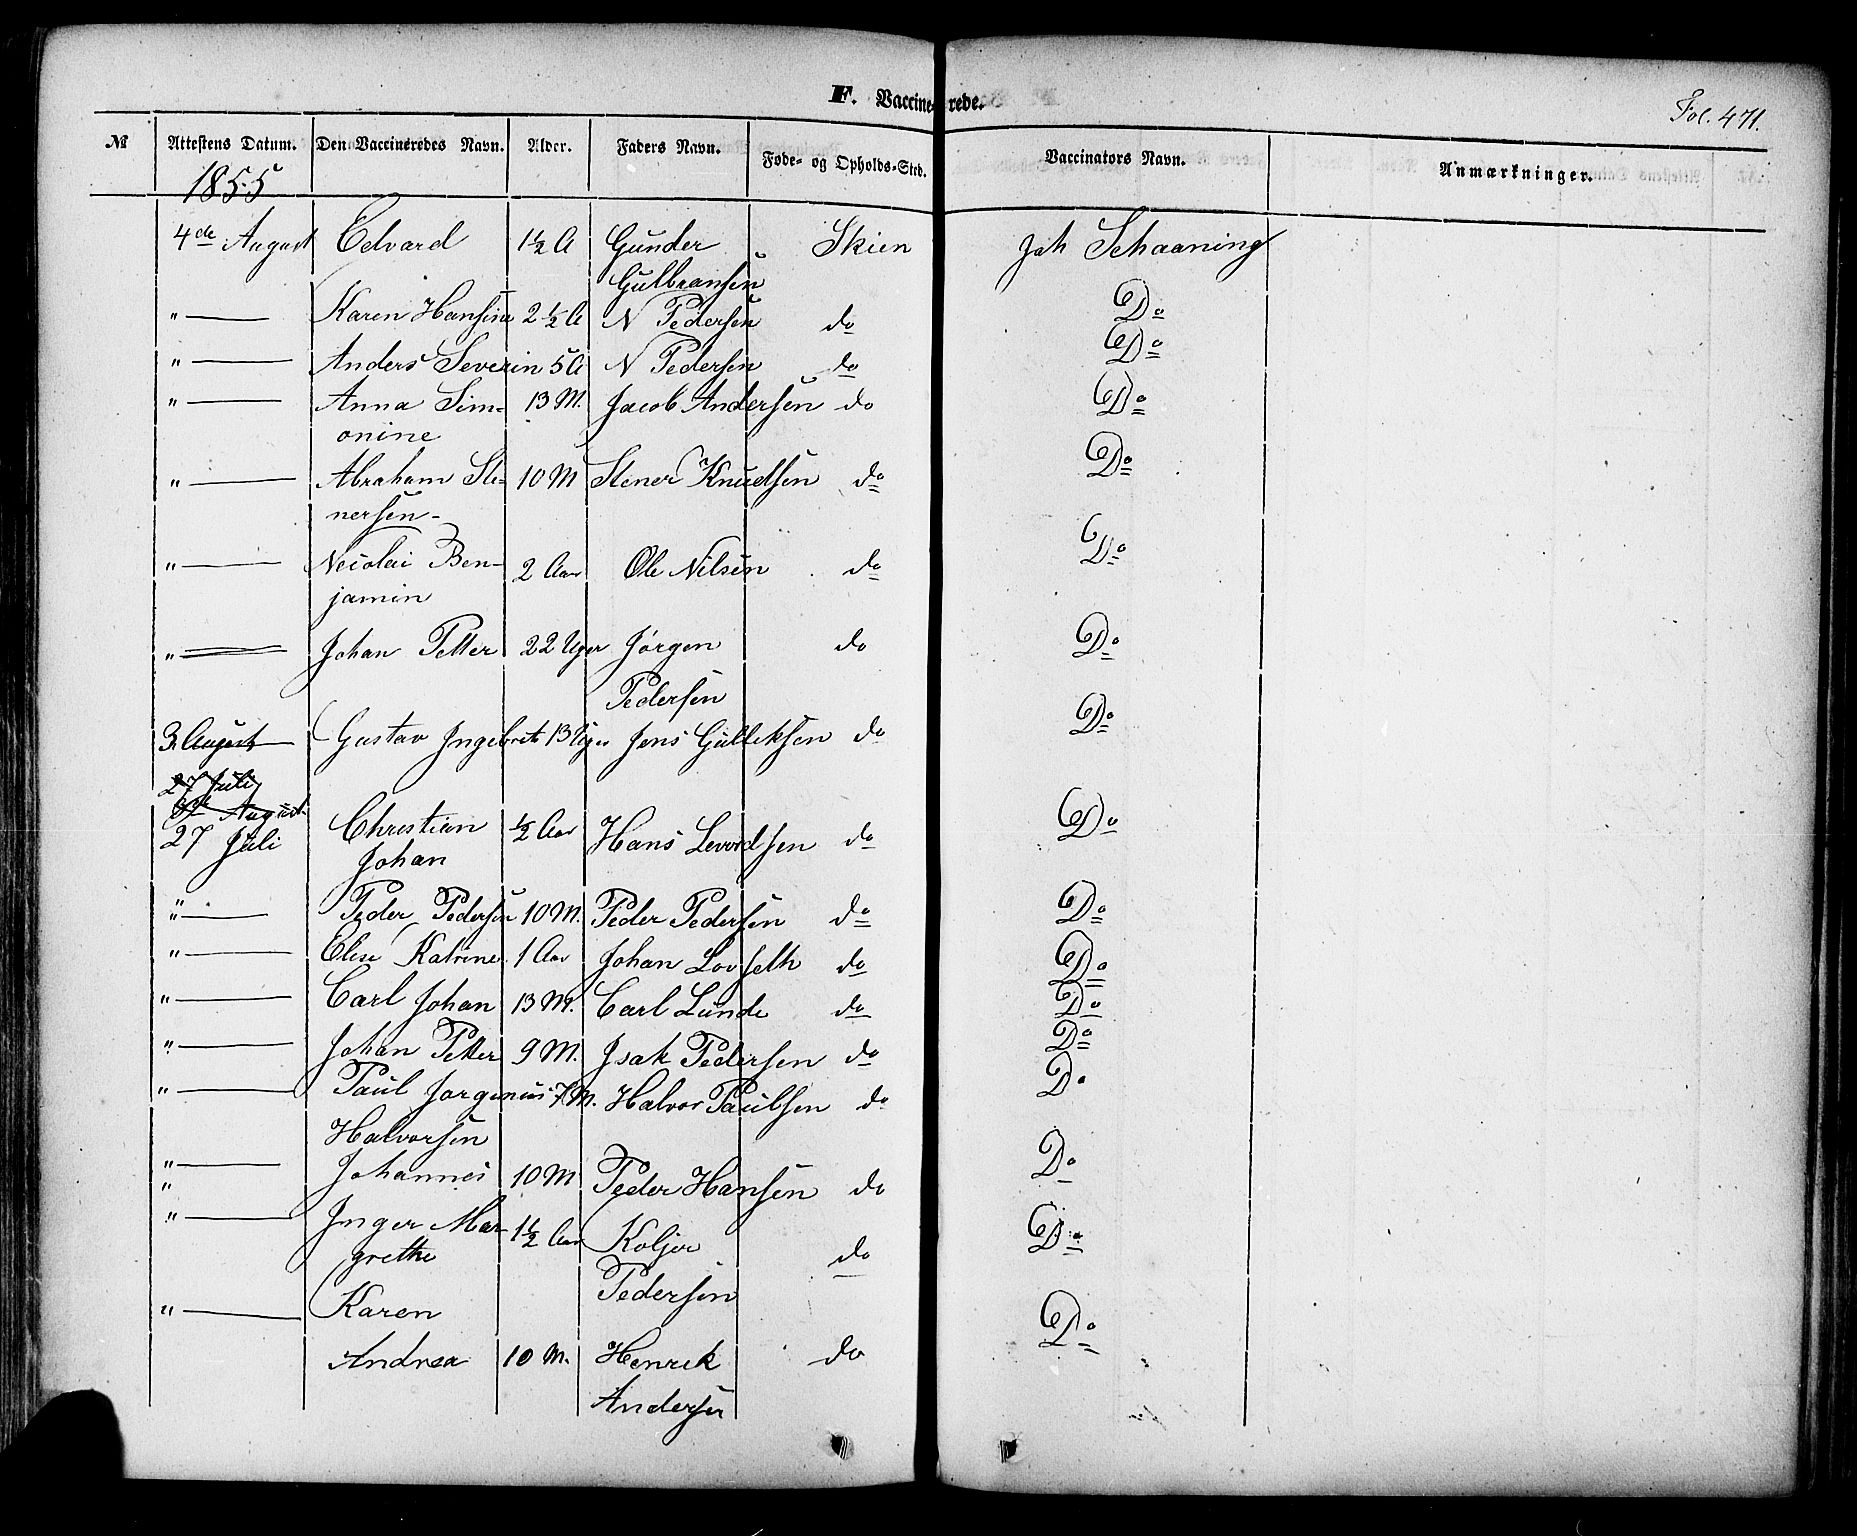 F. Vaccinerede.
Fol. 471.
№ Attestens Datum. Den Vaccineredes Navn. Alder. Faders Navn. Føde- og Opholds-Sted. Vaccinators Navn. Anmærkninger.
1855
4de August Edvard 1½ A Gunder Skien Joh Schaaning
Gulbransen
" Karen Hansine 2½ A N Pedersen do Do
" Anders Severin 5 A N Pedersen do Do
" Anna Sim- 13 M. Jacob Andersen do Do
onine
" Abraham Ste- 10 M Stener Knudsen do Do
nersen-
" Nicolai Ben- 2 Aar Ole Nilsen do Do
jamin
" Johan Petter 22 Uger Jørgen do Do
Pedersen
3 August Gustav Ingebret 13 Uger Jens Gulleksen do Do
27 Juli
3de August
27 Juli Christian ½ Aar Hans Levordsen do Do
Johan
" Peder Pedersen 10 M. Peder Pedersen do Do
" Elise Katrine 1 Aar Johan Lovseth do Do
" Carl Johan 13 M. Carl Lunde do Do
" Johan Petter 9 M. Isak Pedersen do Do
" Paul Jørginius 7 M. Halvor Paulsen do Do
Halvorsen
" Johannes 10 M Peder Hansen do Do
"
" Inger Mar- 1½ Aar Koljør do Do
grethe Pedersen
" Karen
Andrea 10 M. Henrik do Do
Andersen